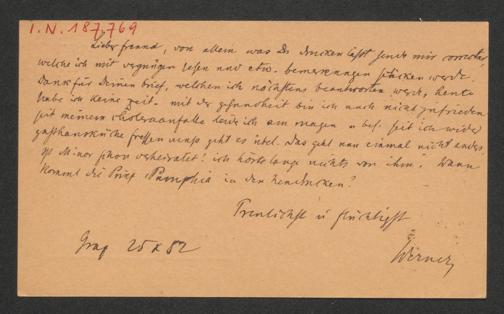 I.N. 187.769
Lieber freund, von allem was Du drucken laßt sende mir correctur,
welche ich mit vergnügen lesen und etw. bemerkungen schicken werde.
Dank für Deinen brief, welchen ich nächstens beantworten werde, heute
habe ich keine zeit. mit der gesundheit bin ich noch nicht zufrieden
seit meinem choleraanfalle leide ich am magen u bes. seit ich wieder
gasthausküche fressen muss geht es übel. Das geht nun einmal nicht anders
Ist Minor schon verheiratet? ich hörte lange nichts von ihm. Wann
kommt die Prinz. Pumphia in den neudrucken?
Treulichst u flüchtigst
Graz 25 X 82
Werner